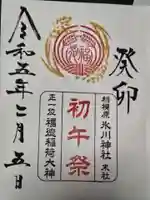 癸卯
相模原 氷川神社 末社
初午祭
正一位 福徳稲荷大神
令和五年二月五日